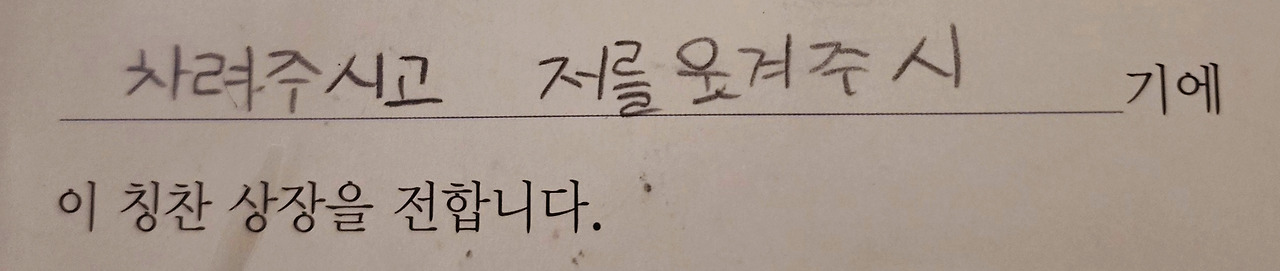 차려주시고 저를 웃겨주시 기에
이 칭찬 상장을 전합니다.